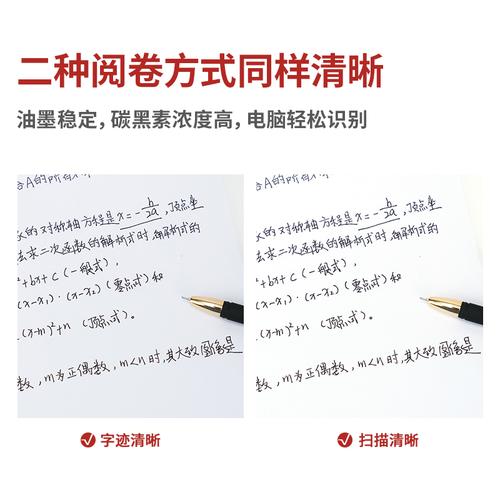 二种阅卷方式同样清晰
油墨稳定,碳黑素浓度高,电脑轻松识别
的对称轴方程是x=-b/2a,顶点坐
去求二次函数的解析式时,解析式的
+bx+c(一般式),
(x-x₁)·(x-x₂)(零点式)和
(x-m)²+n(顶点式)。
数,m为正偶数,m<n时,其大致图像是
的对称轴方程是x=-b/2a,顶点坐
去求二次函数的解析式时,解析式的
+bx+c(一般式),
(x-x₁)·(x-x₂)(零点式)和
(x-m)²+n(顶点式)。
数,m为正偶数,m<n时,其大致图像是
字迹清晰
扫描清晰